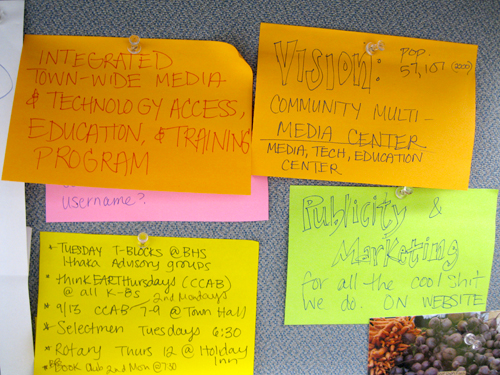 INTEGRATED
TOWN-WIDE MEDIA
& TECHNOLOGY ACCESS,
EDUCATION, & TRAINING
PROGRAM
VISION:
POP.
57,107 (2000)
COMMUNITY MULTI-
MEDIA CENTER
MEDIA, TECH, EDUCATION
CENTER
username?
Publicity &
Marketing
for all the cool shit
we do. ON WEBSITE
*-TUESDAY T-BLOCKS @ BHS
Ithaka Advisory groups
* thinkEARThursdays (CCAB)
@ all K-8s
2nd Mondays
* 9/13 CCAB 7-9 @ Town Hall
* Selectmen Tuesdays 6:30
* Rotary Thurs 12 @ Holiday
Inn
* Book Club 2nd Mon @ 7:30